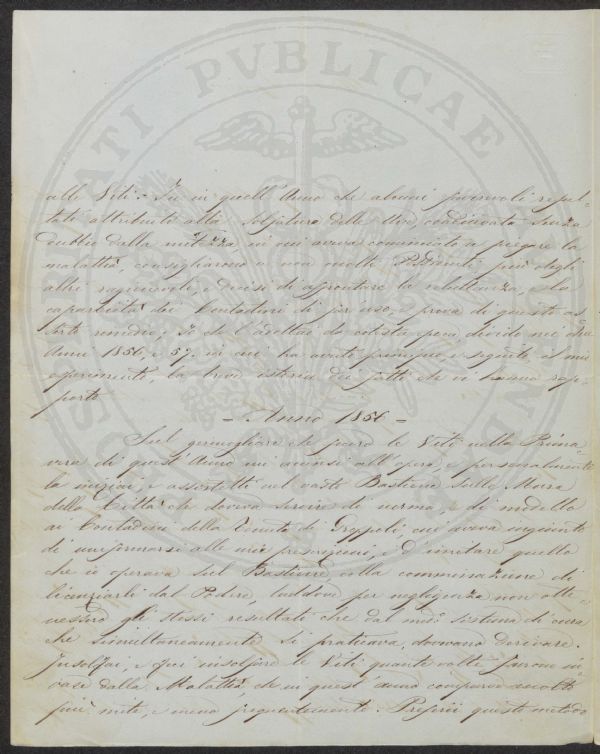 alle Viti. Fu in quell'Anno che alcuni favorevoli resul-
tati attribuiti alla Solfatura delle Uve, coadiuvata senza
dubbio dalla mitezza, in cui aveva cominciato a piegare la
malattia, consigliarono a non molti Possidenti più degli
altri ragionevoli, e decisi di affrontare la riluttanza, e la
caparbietà dei Contadini di far uso, e prova di questo as-
serto rimedio; Io che l'adottai da cotesta epoca, divido nei due
Anni 1856, e 57. in cui ha avuto principio, e seguito il mio
esperimento, la breve istoria dei fatti che vi hanno rap-
porto.
= Anno 1856 =
Sul germogliare che fecero le Viti nella Prima-
vera di quest'Anno mi accinsi all'opera, e personalmente
la iniziai, e assistetti nel vasto Bastione sulle Mura
della Città che doveva servire di norma, e di modello
ai Contadini della Tenuta di Freppoli, cui aveva ingiunto
di uniformarsi alle mie prescrizioni, e d'imitare quello
che io operava sul Bastione colla comminazione di
licenziarli dal Podere, laddove per negligenza non otte-
nessero gli stessi resultati che dal mio sistema di cura
che simultaneamente si praticava, dovevano derivare.
Insolfai, e feci insolfare le Viti quante volte furono in-
vase dalla Malattia, che in quest'anno comparve molto
più mite, e meno frequentemente. Preferii questo metodo